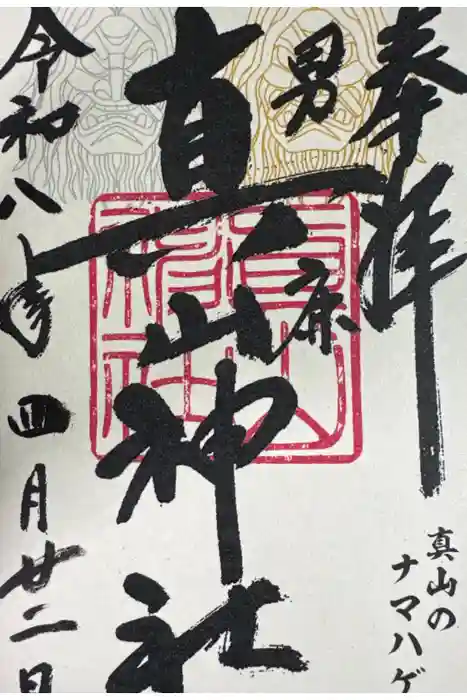 奉拝
男鹿
真山神社
令和八年四月廿二日
真山の
ナマハゲ
真山神社